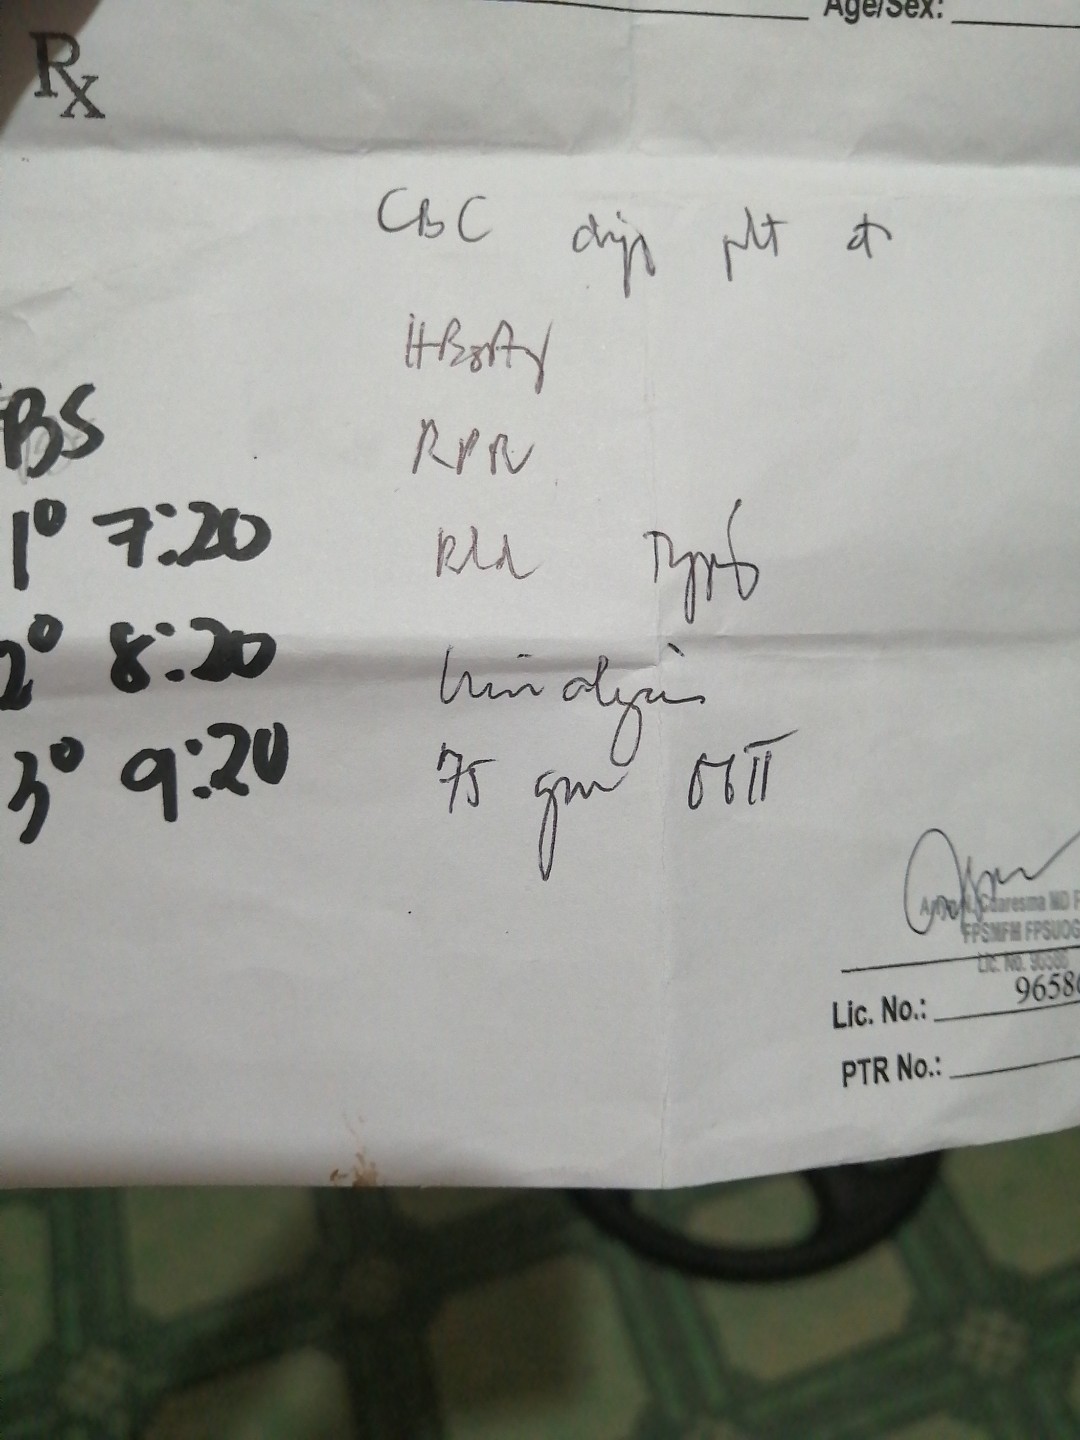 Age/Sex:
Rx
CBC plt ct
HBsAg
RPR
Bld Typing
Urinalysis
75 gm OGTT
BS
1° 7:20
2° 8:20
3° 9:20
Cuaresma MD F
FPSMFM FPSUOG
Lic. No. 96586
Lic. No.: 9658
PTR No.: